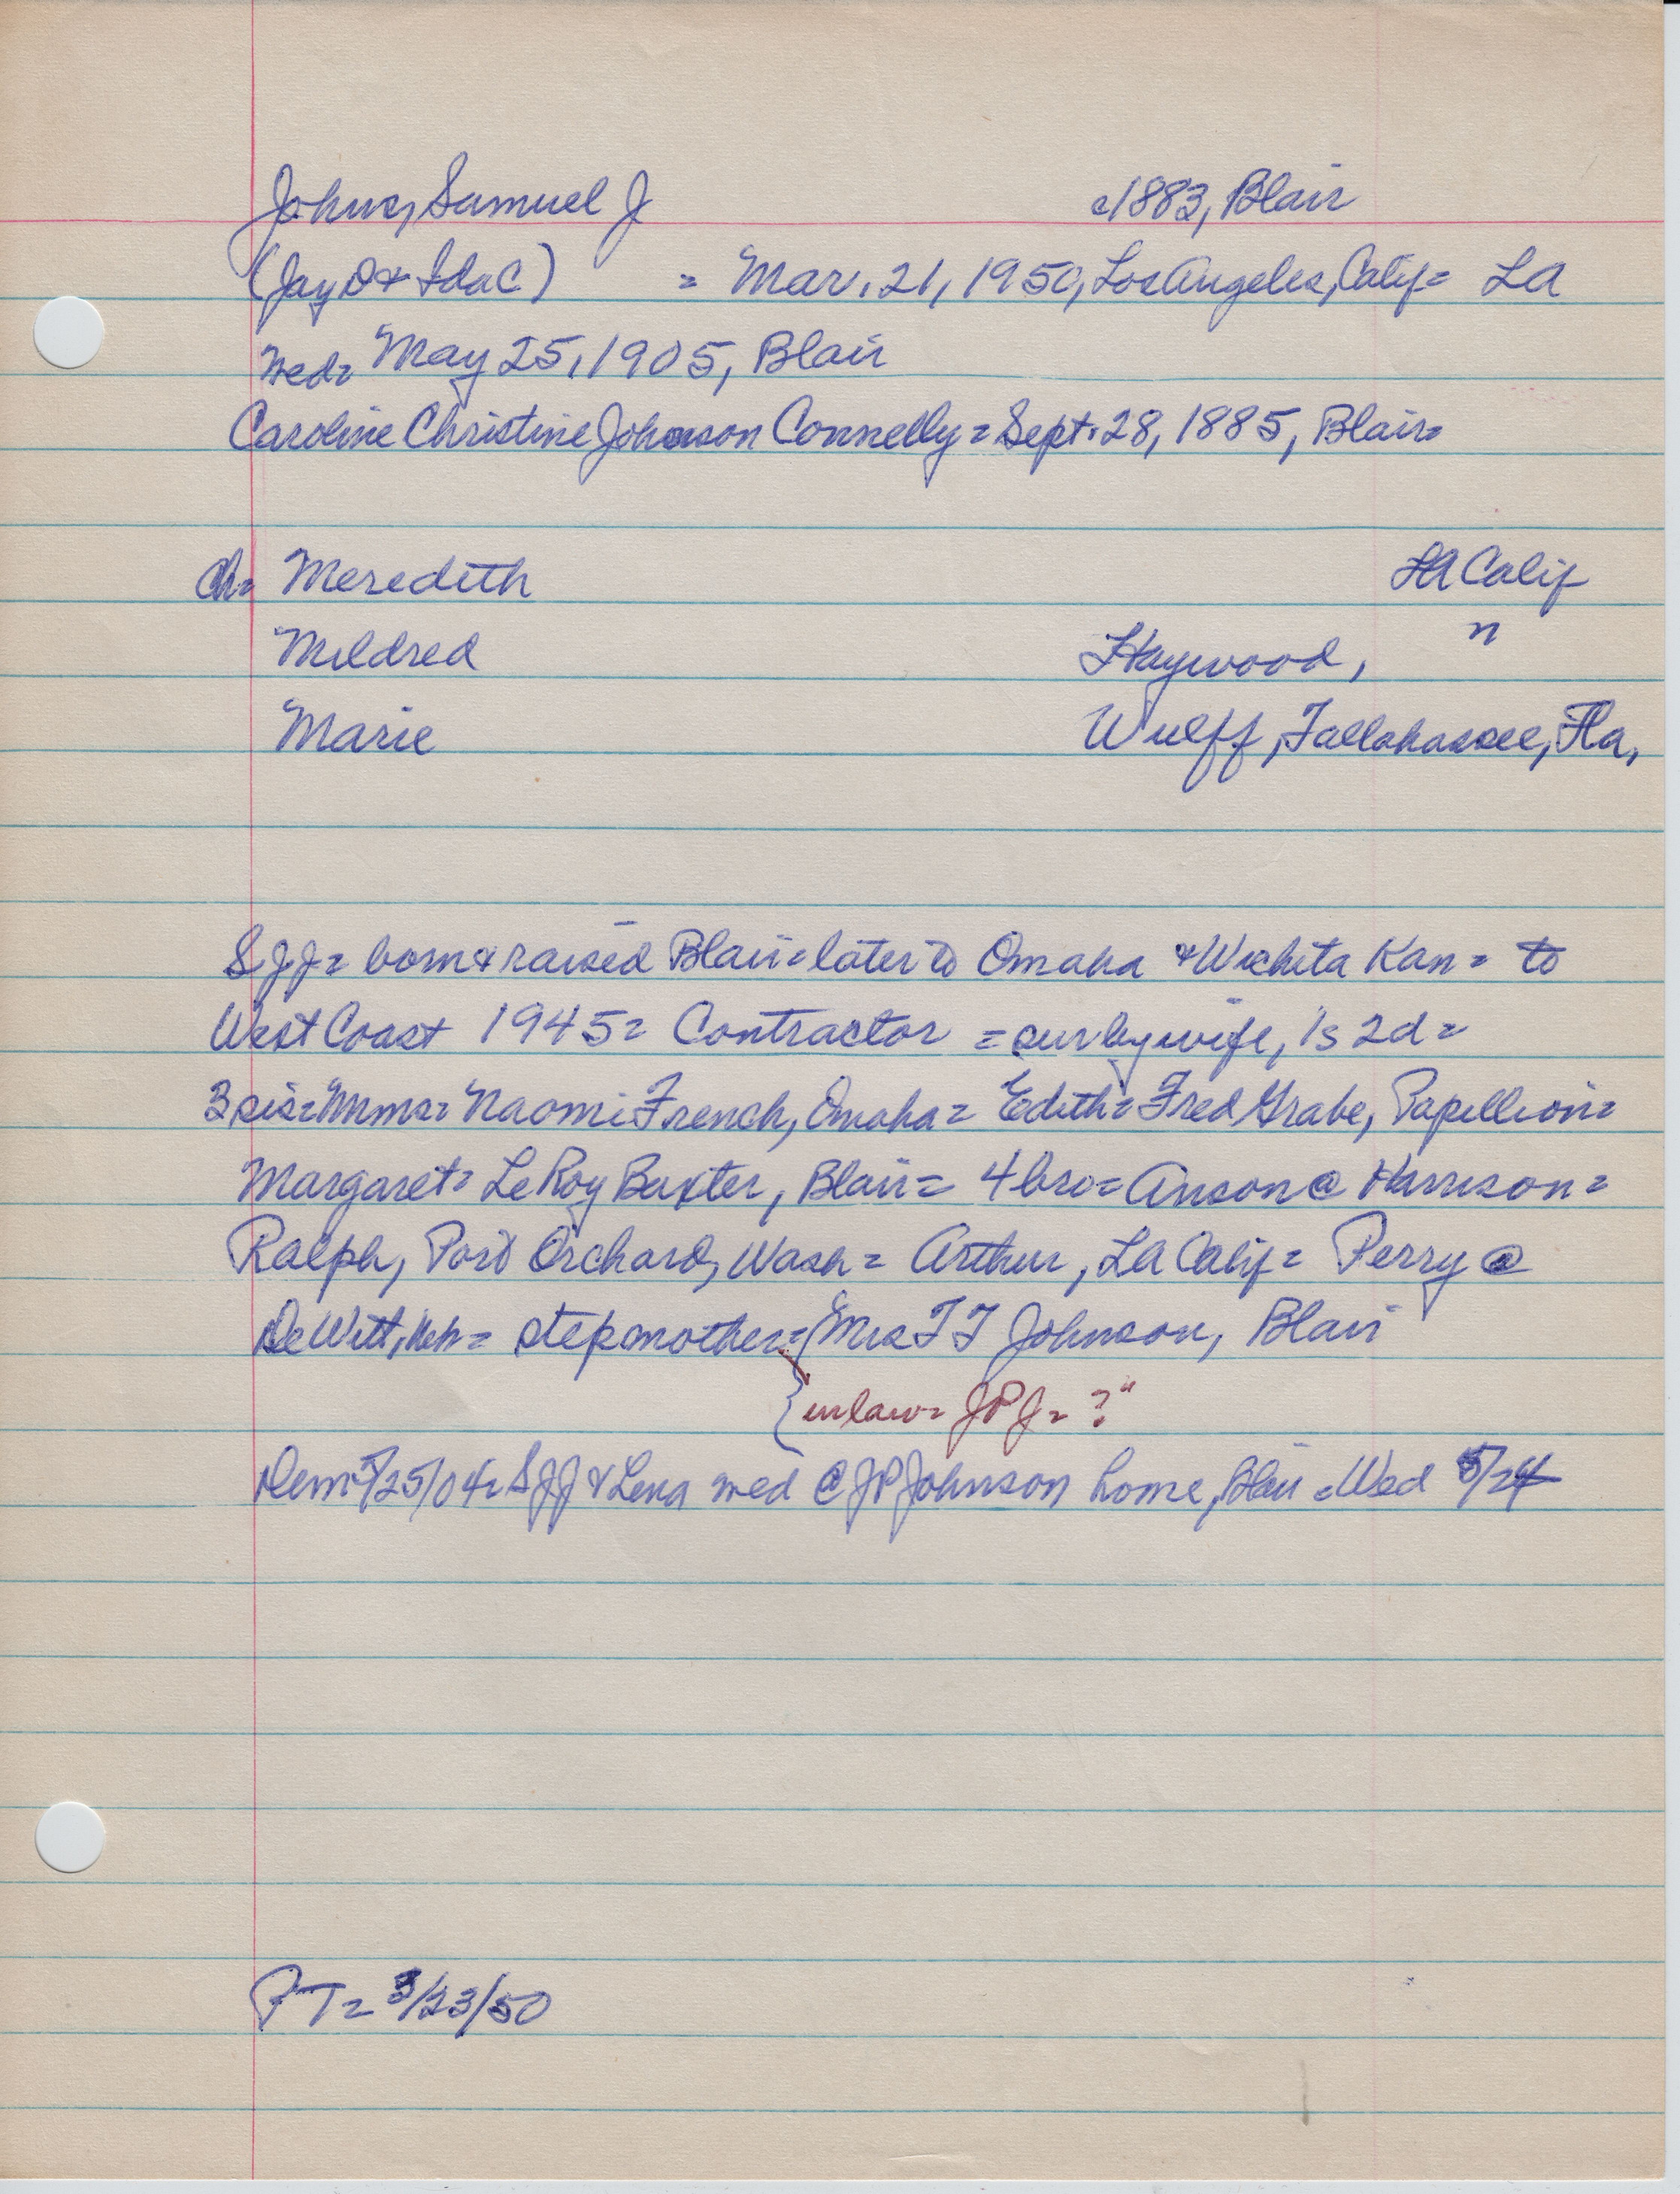 Johns, Samuel J c1883, Blair
(Jay O & Ida C) = Mar. 21, 1950, Los Angeles, Calif = LA
Wed= May 25, 1905, Blair
Caroline Christine Johnson Connelly = Sept. 28, 1885, Blair=
Ch= Meredith LA Calif
Mildred Haywood, "
Marie Wulff, Tallahassee, Fla,
SJJ= born & raised Blair= later to Omaha & Wichita Kan = to
West Coast 1945= Contractor = sur by wife, 1s 2d=
3 sis= Mmms= Naomi French, Omaha = Edith= Fred Grabe, Papillion=
Margaret= LeRoy Baxter, Blair= 4 bro= Anson @ Harrison=
Ralph, Port Orchard, Wash= Arthur, LA Calif= Perry @
DeWitt, Neb= stepmother= (Mrs TT Johnson, Blair
{inlaw= JPJ= ?"
Dem 5/25/04= SJJ & Lena wed @ JP Johnson home, Blair = Wed 5/24
PT= 3/23/50